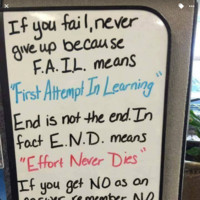 If you fail, never
give up because
F.A.I.L. means
"First Attempt In Learning"
End is not the end. In
fact E.N.D. means
"Effort Never Dies"
If you get NO as an
answer remember NO